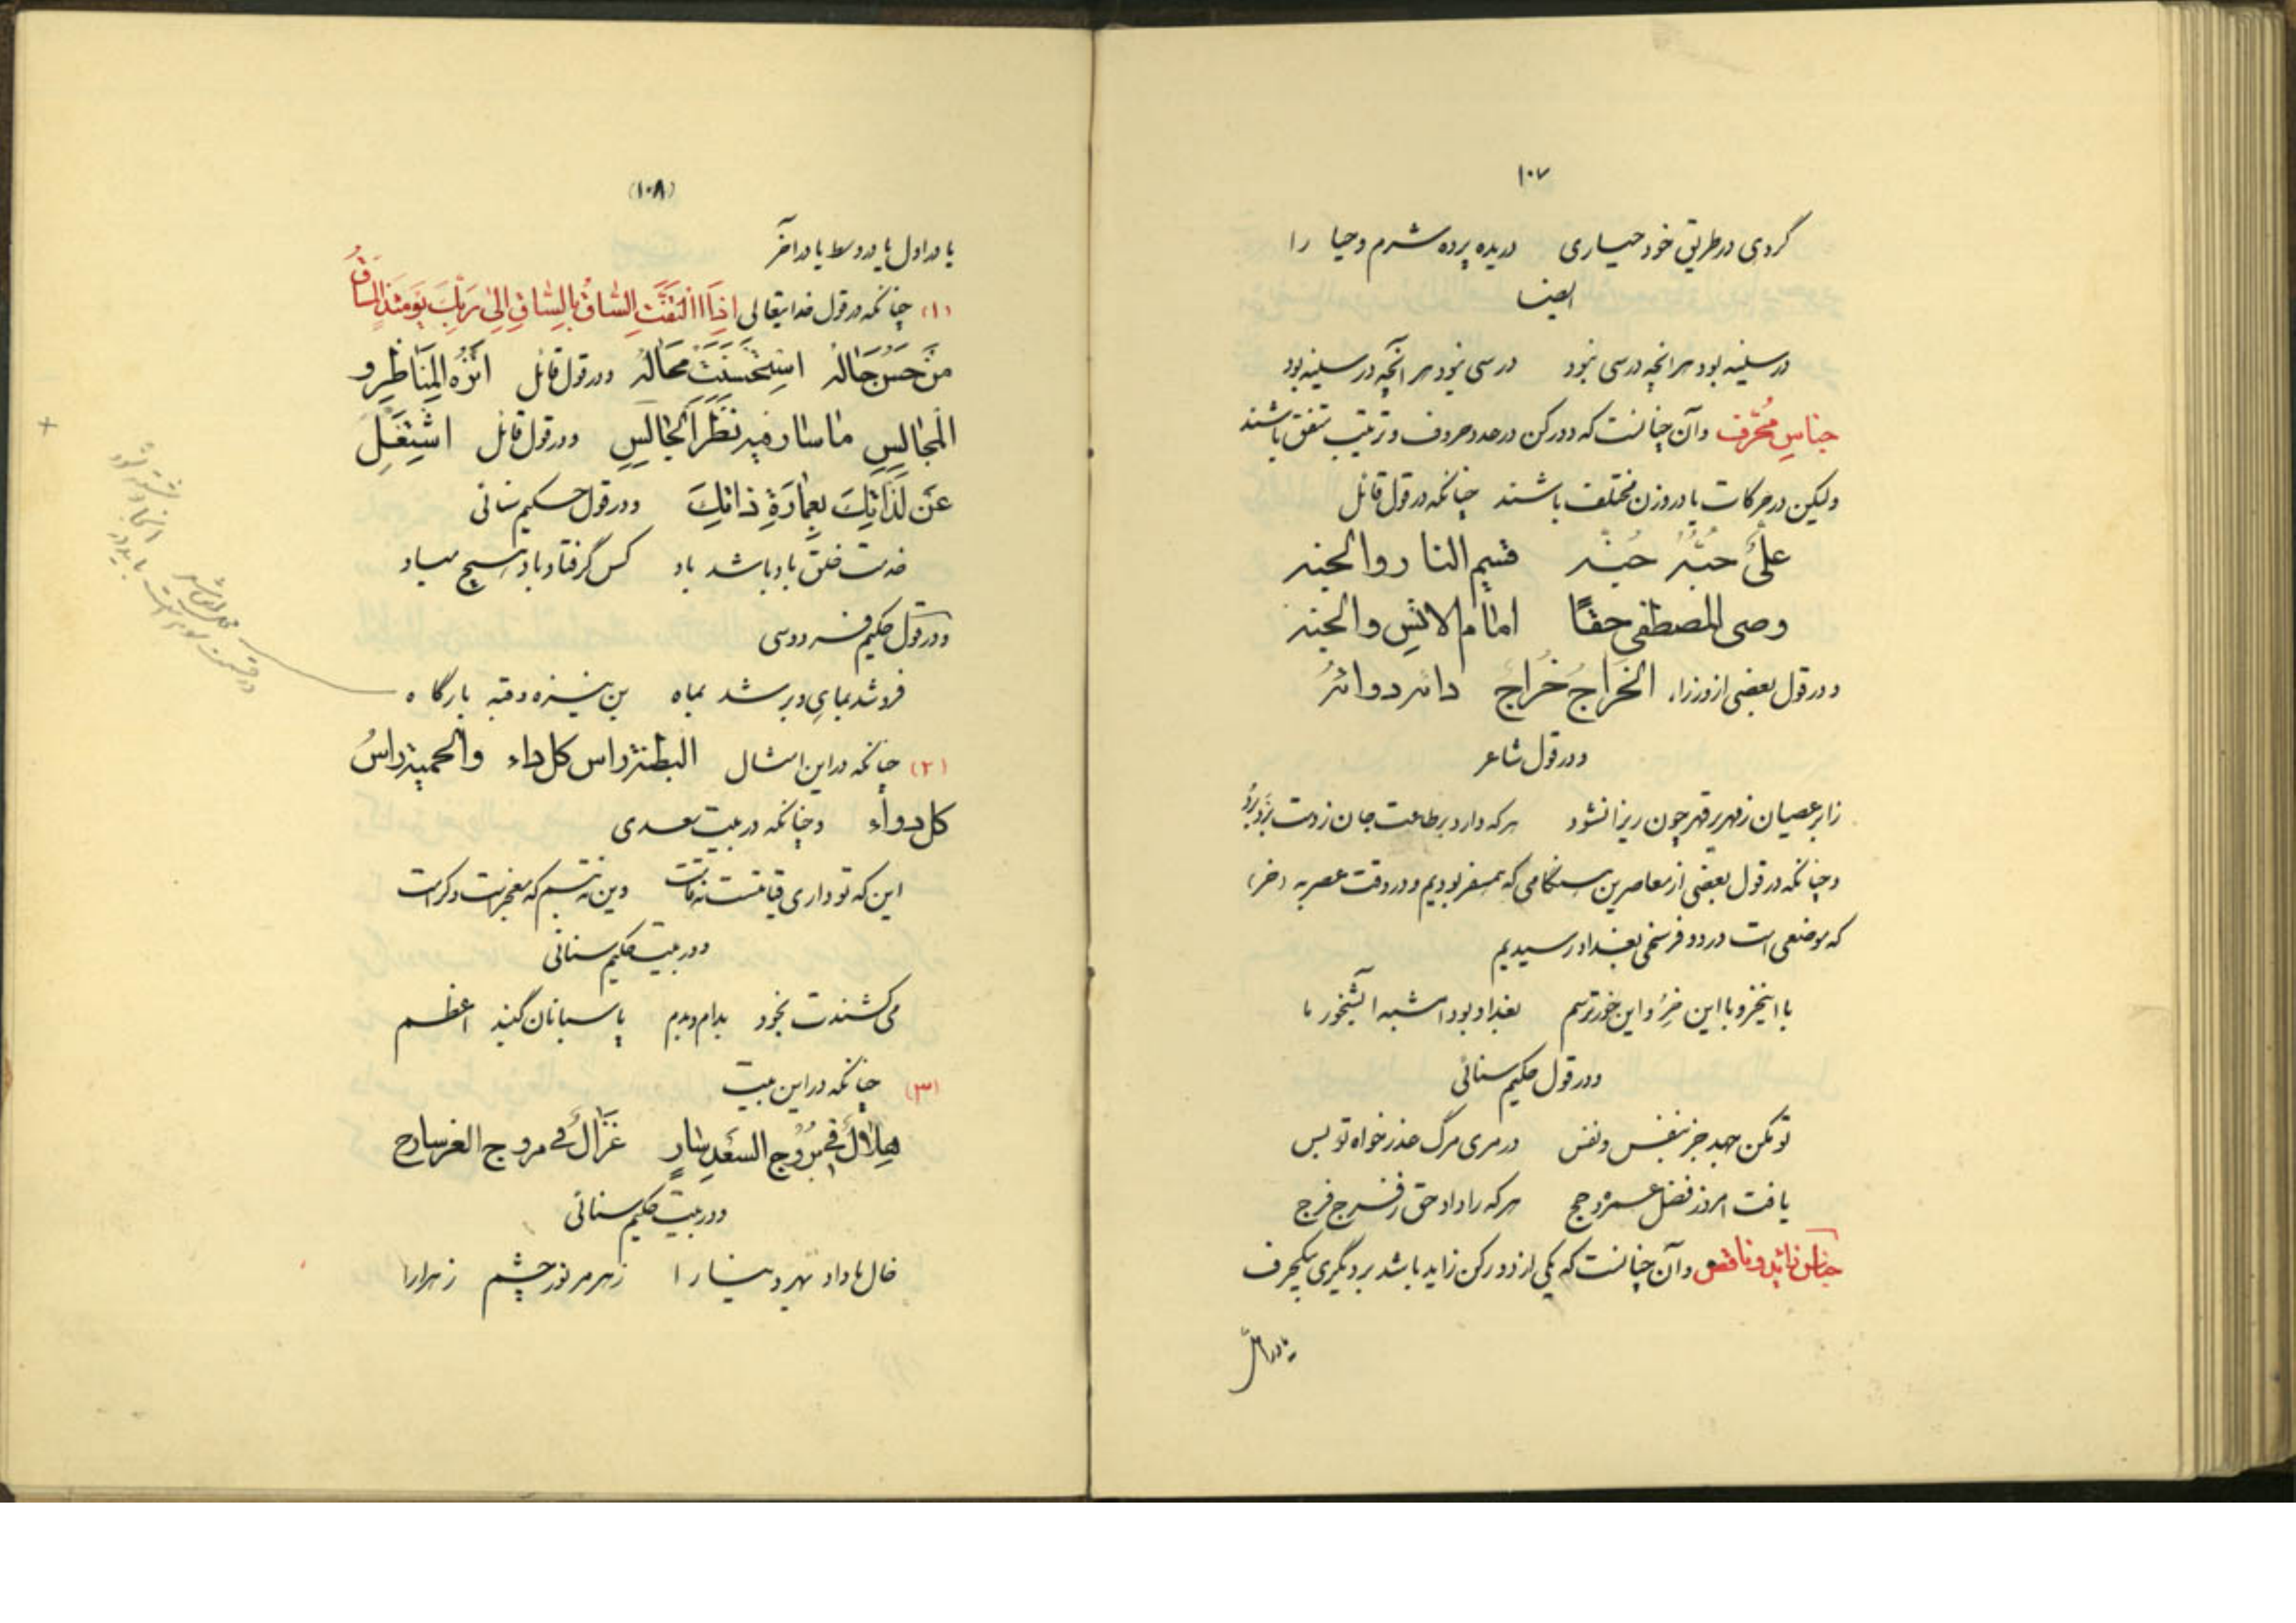 ۱۰۷
کردی در طریق خود حیساری دریده پرده شرم و حیا را
ایضا
در سفینه بود هر انچه درسی نبود درسی نبود هر آنچه در سفینه بود
جناسِ مُحَرَّف و آن چنانست که دو رکن در عدد حروف و ترتیب متفق باشند
ولیکن در حرکات یا در وزن مختلف باشند چنانکه در قول قائل
علیٌ حُبُّهُ جُنَّه قسیم النار والجنه
وصی المصطفی حقًا امام الانسِ والجنه
و در قول بعضی از وزراء الخَراجُ خُراجٌ دائه دوائهُ
و در قول شاعر
زابر عصیان زمهریر قهر چون ریزان شود هر که دارد بر طاعت جان ز دست بَرد بُرد
و چنانکه در قول بعضی از معاصرین هنگامی که همسفر بودیم و در وقت عصر به (خر)
که موضعی است در دو فرسخی بغداد رسیدیم
با این خر و با این خرِ و این خورترسم بغداد بود امشبه آبشخور ما
و در قول حکیم سنائی
تو مکن جهد جز بنفس و نفس در مری مرگ عذر خواه تو بس
یافت امروز فضل عمره و حج هر که را داد حق ز فرج فرج
جناس زائد و ناقص و آن چنانست که یکی از دو رکن زاید باشد بر دیگری بیکحرف
یا در اول
(۱۰۸)
یا در اول یا در وسط یا در آخر
(۱) چنانکه در قول خدایتعالی اِذَا التَفَّتِ السّاقُ بِالسّاقِ اِلی رَبِّكَ یَومَئذٍ المَساقُ
مَن حَسُنَ حَالُهُ استُحسِنَت مُحَالُهُ و در قول قائل انزه المناظر و
المجالس ما سار فیه نظر الجالس و در قول قائل اشتغل
عن لذاتك بعمارة ذاتك و در قول حکیم سنائی
خدمت خلق باد باشد باد کس گرفتار باد هیچ مباد
و در قول حکیم فردوسی
فرو شد بماهی و بر شد بماه بن نیزه و قبه بارگاه
(۲) چنانکه در این امثال البطنة راس کل داء والحمیة راسُ
کل دواء و چنانکه در بیت سعدی
این که تو داری قیامتست نه قامت وین نه تبسم که معجزست و کرامت
و در بیت حکیم سنائی
می کشندت بخود بدام و بدم پاسبانان گنبد اعظم
(۳) چنانکه در این بیت
هلالٌ فی بروج السعد سارٍ غزالٌ فی مروج العز سارح
و در بیت حکیم سنائی
خال ها داد بهر دینها را زهر مر نور چشم زهرا را